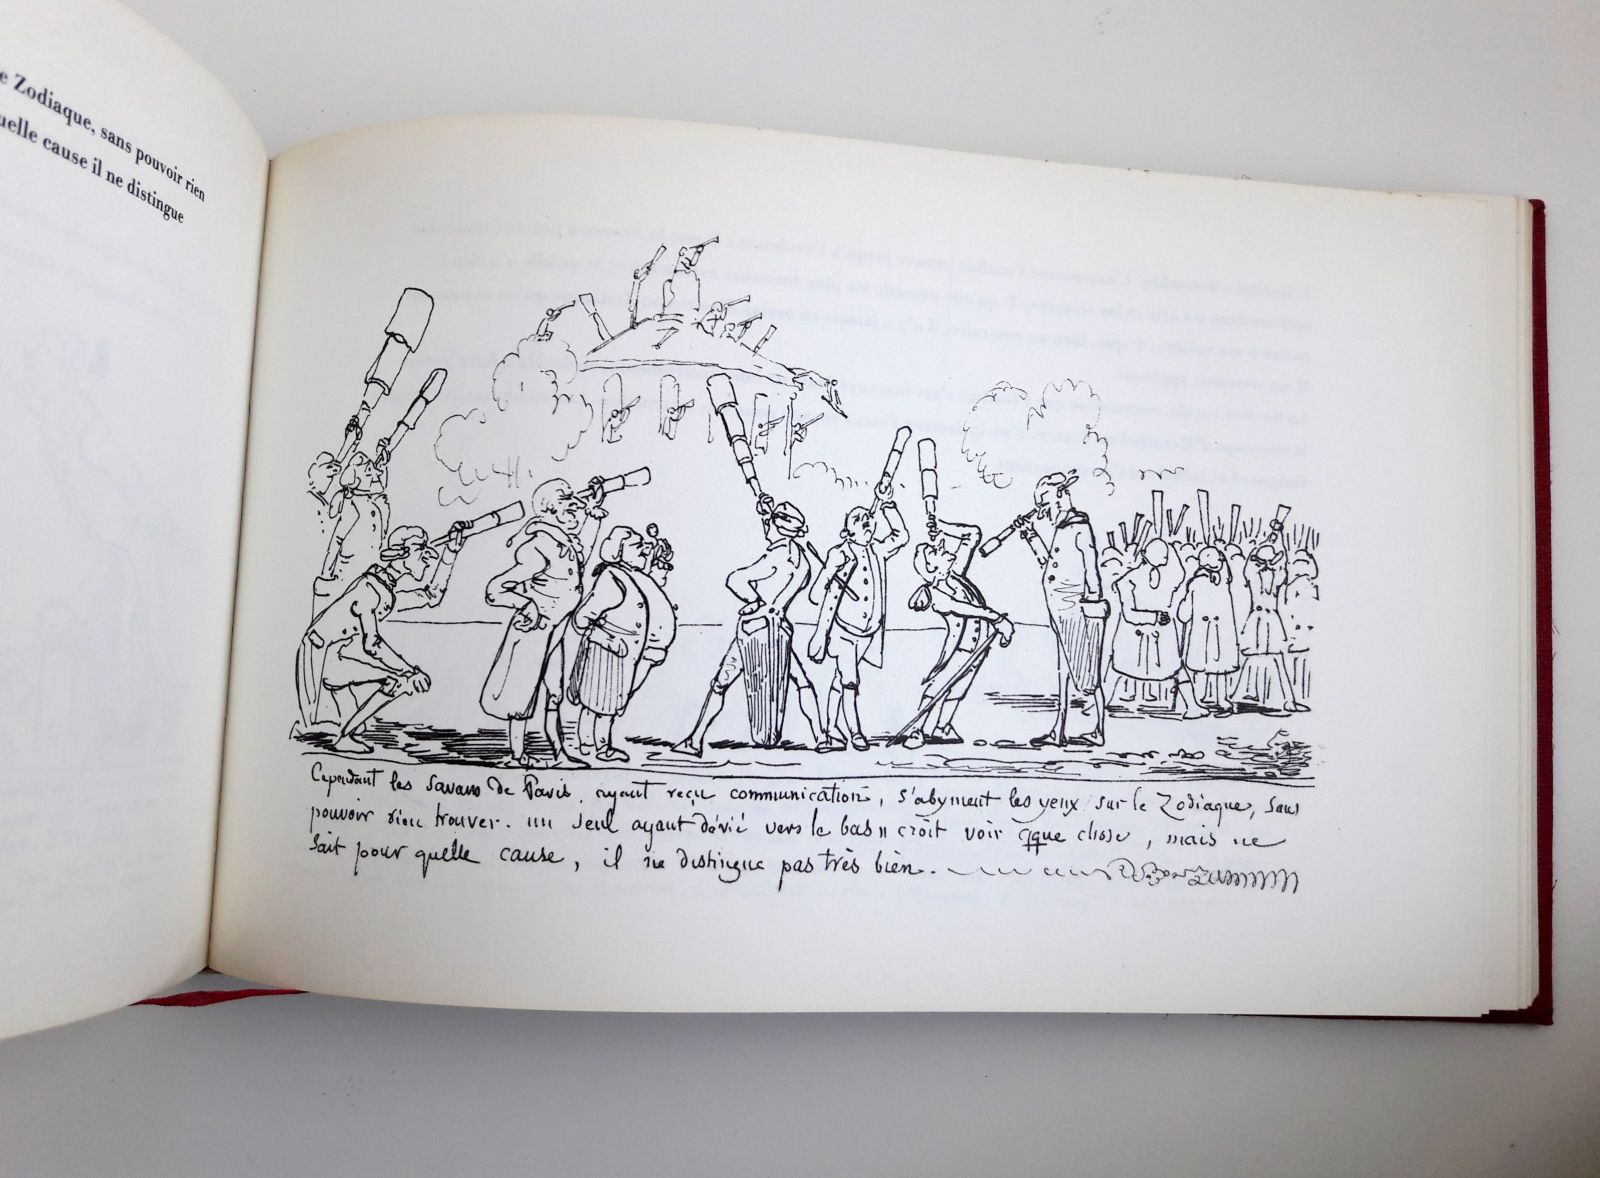 e Zodiaque, sans pouvoir rien
uelle cause il ne distingue
Cependant les savans de Paris, ayant reçu communication, s'abyment les yeux sur le Zodiaque, sans
pouvoir rien trouver. un seul ayant dévié vers le bas croit voir qque chose, mais ne
sait pour quelle cause, il ne distingue pas très bien.